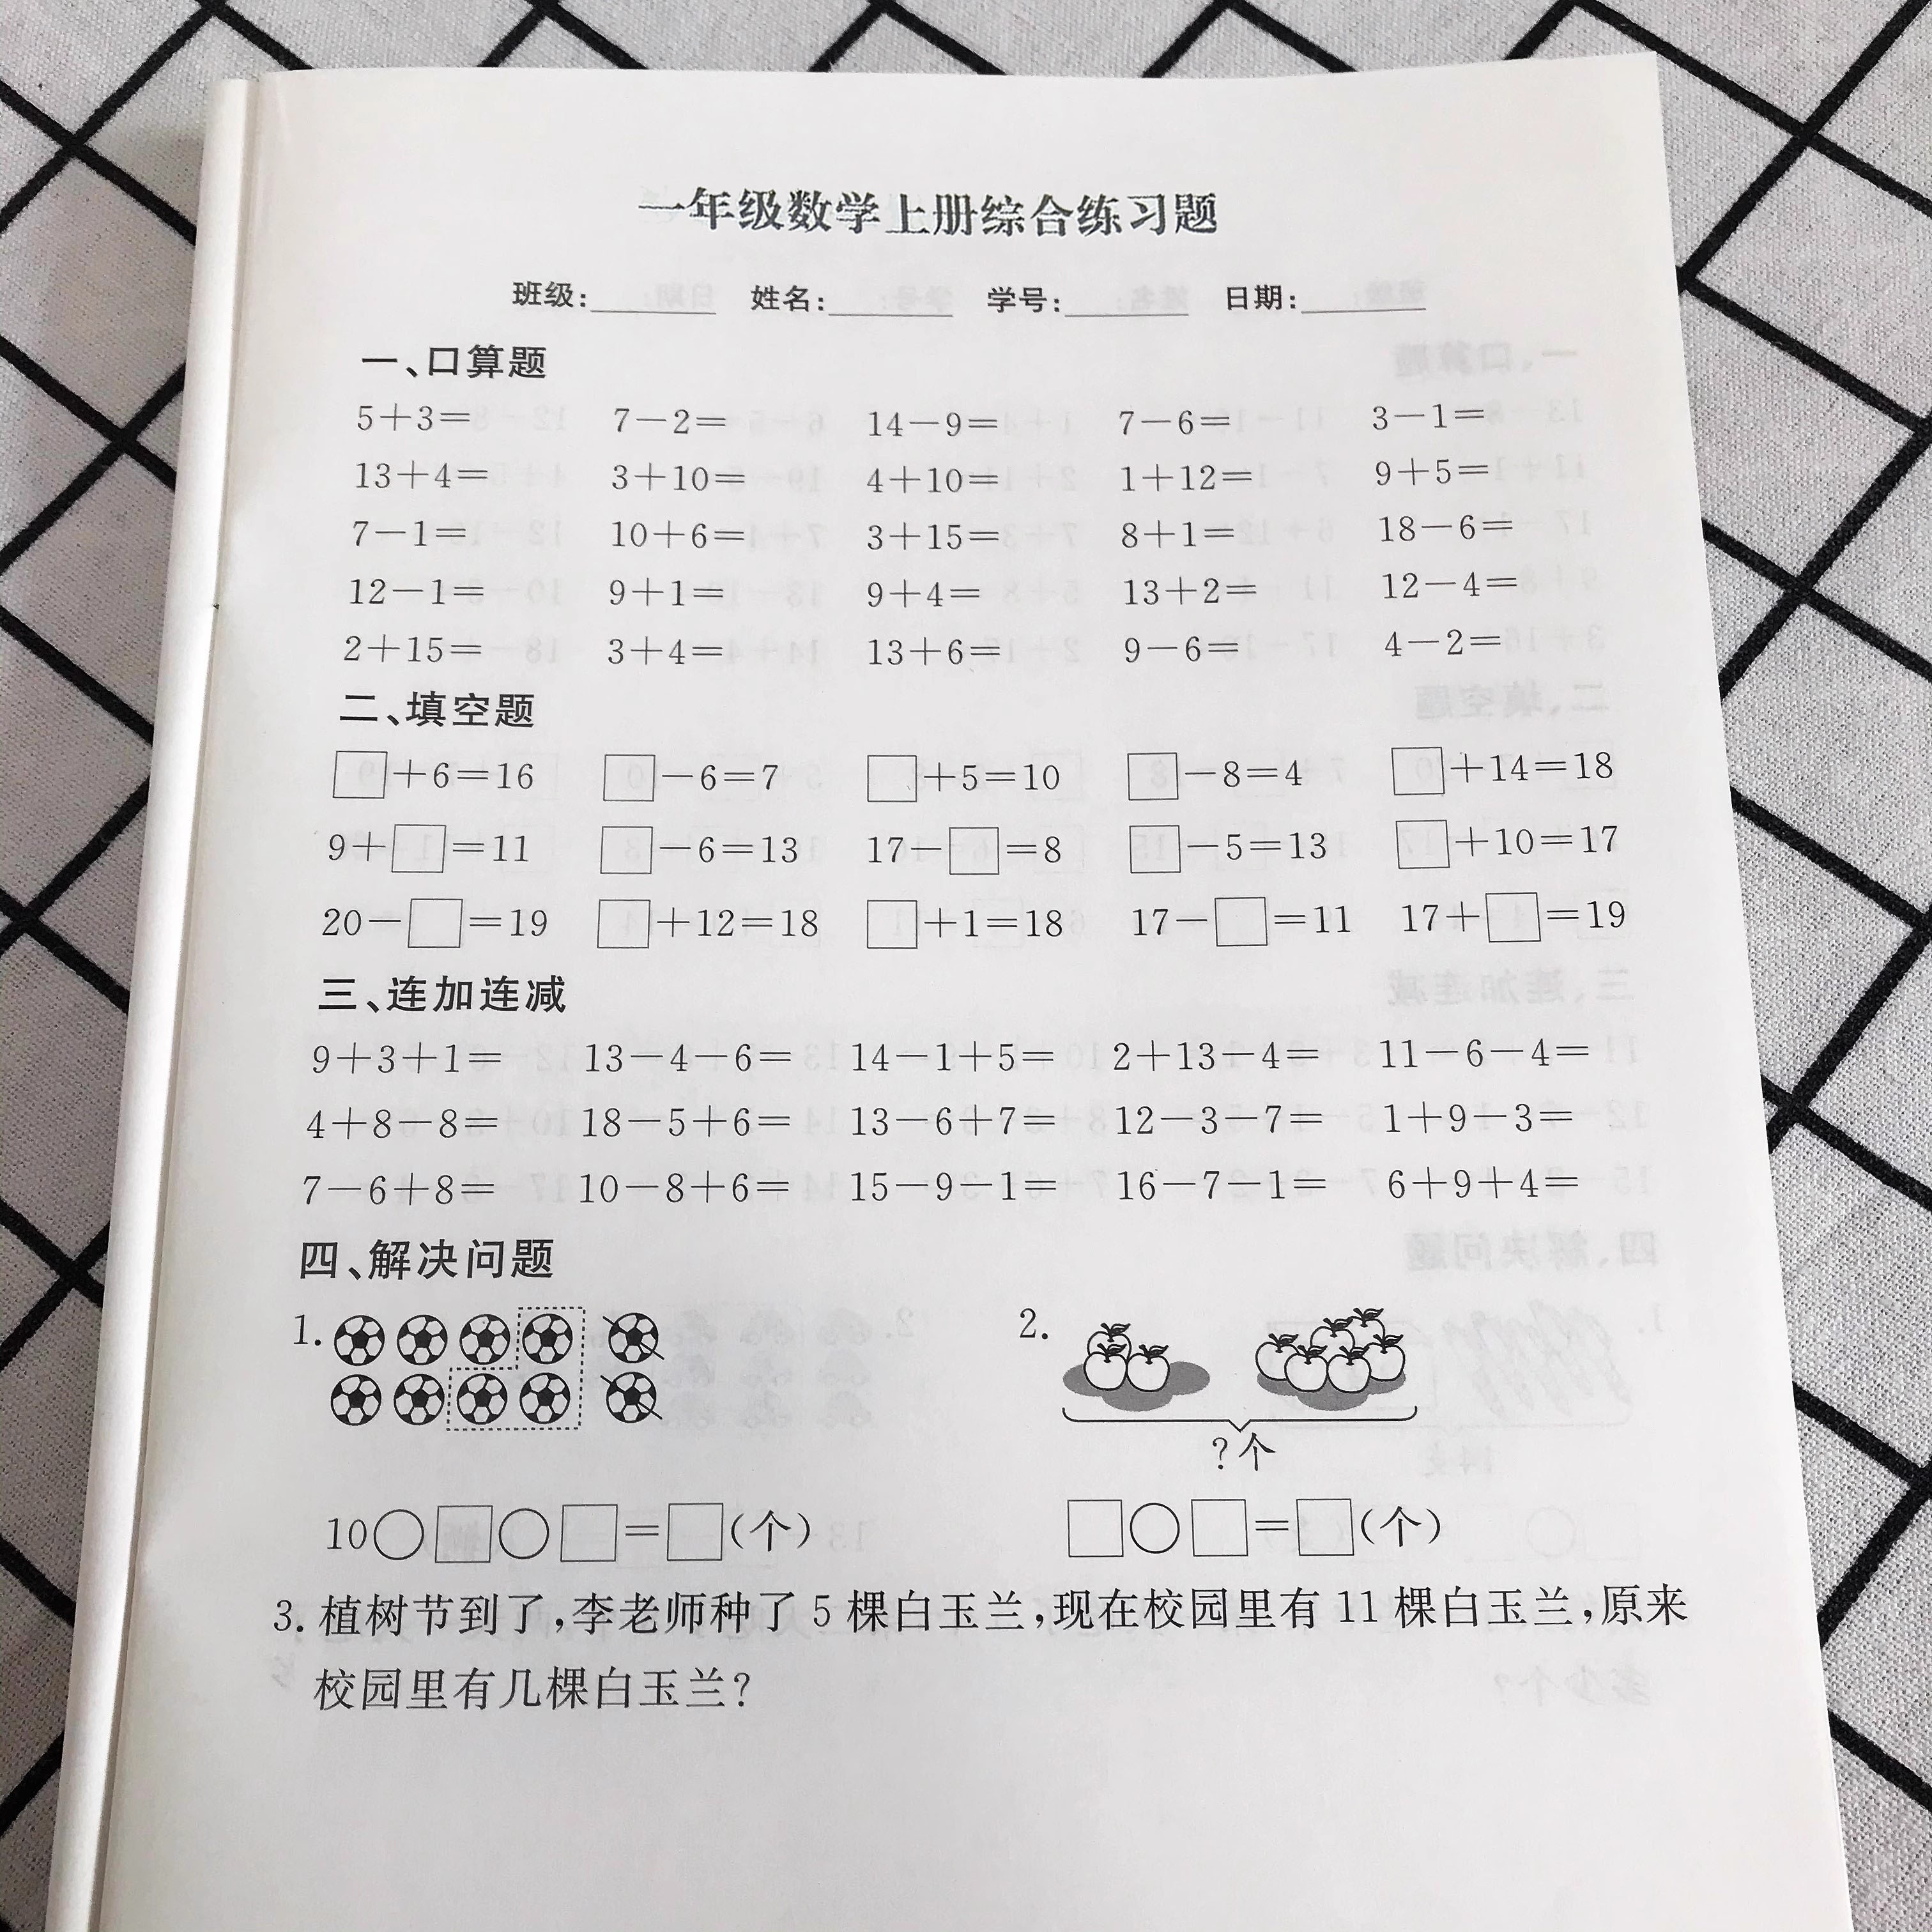 一年级数学上册综合练习题
班级:______ 姓名:______ 学号:______ 日期:______
一、口算题
5+3= 7−2= 14−9= 7−6= 3−1=
13+4= 3+10= 4+10= 1+12= 9+5=
7−1= 10+6= 3+15= 8+1= 18−6=
12−1= 9+1= 9+4= 13+2= 12−4=
2+15= 3+4= 13+6= 9−6= 4−2=
二、填空题
□+6=16 □−6=7 □+5=10 □−8=4 □+14=18
9+□=11 □−6=13 17−□=8 □−5=13 □+10=17
20−□=19 □+12=18 □+1=18 17−□=11 17+□=19
三、连加连减
9+3+1= 13−4−6= 14−1+5= 2+13−4= 11−6−4=
4+8−8= 18−5+6= 13−6+7= 12−3−7= 1+9−3=
7−6+8= 10−8+6= 15−9−1= 16−7−1= 6+9+4=
四、解决问题
1. 2.
?个
10○□○□=□(个) □○□=□(个)
3. 植树节到了,李老师种了 5 棵白玉兰,现在校园里有 11 棵白玉兰,原来
校园里有几棵白玉兰?